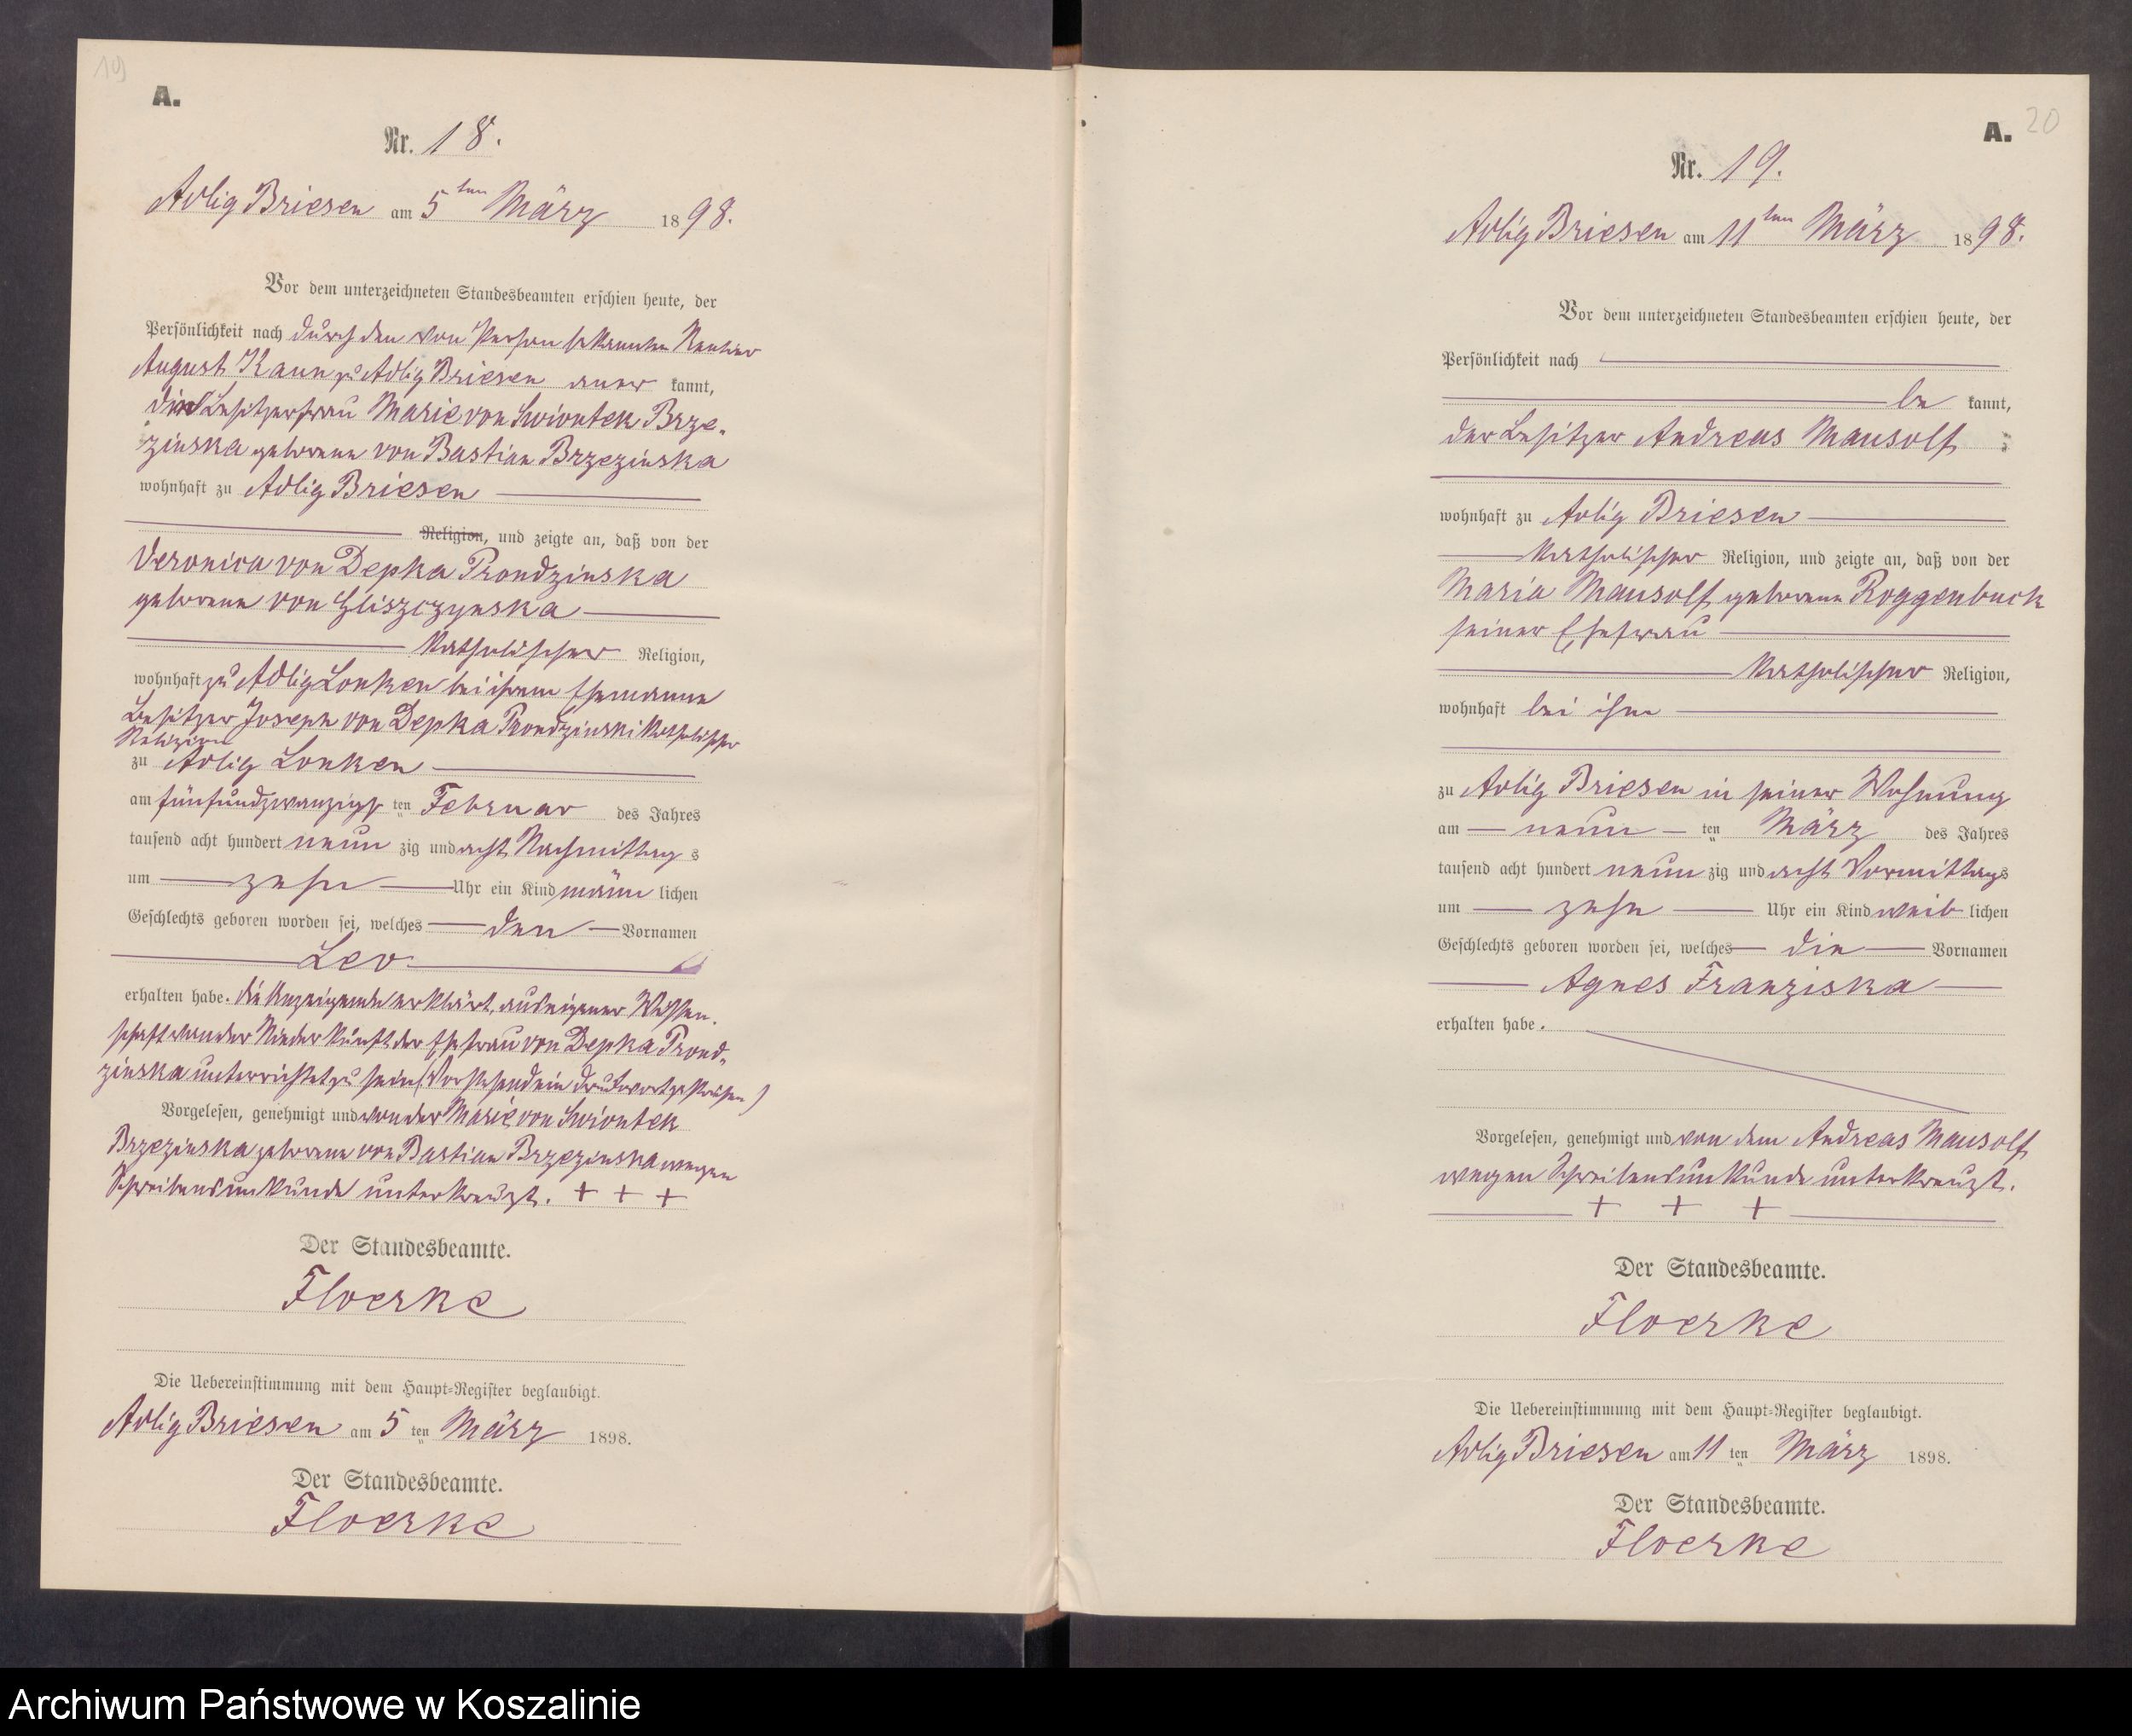 19
A.
Nr. 18.
Adlig Briesen am 5ten März 1898.
Vor dem unterzeichneten Standesbeamten erschien heute, der
Persönlichkeit nach durch den von Person bekannten Rentier
August Kann zu Adlig Briesen aner kannt,
die Besitzerfrau Marie von Swiontek Brze-
zinska geborene von Bastian Brzezinska
wohnhaft zu Adlig Briesen
Religion, und zeigte an, daß von der
Veronica von Depka Prondzinska
geborene von Gliszczynska
katholischer Religion,
wohnhaft zu Adlig Lonken bei ihrem Ehemanne
Besitzer Joseph von Depka Prondzinski katholischer
Religion
zu Adlig Lonken
am fünfundzwanzigs ten Februar des Jahres
tausend acht hundert neun zig und acht Nachmittag s
um zehn Uhr ein Kind männ lichen
Geschlechts geboren worden sei, welches den Vornamen
Leo
erhalten habe. Die Anzeigende erklärt, aus eigener Wissen-
schaft von der Niederkunft der Ehefrau von Depka Prond-
zinska unterrichtet zu sein (Vorstehend ein Druckwort gestrichen)
Vorgelesen, genehmigt und von der Marie von Swiontek
Brzezinska geborene von Bastian Brzezinska wegen
Schreibensunkunde unterkreuzt. + + +
Der Standesbeamte.
Floerke
Die Uebereinstimmung mit dem Haupt-Register beglaubigt.
Adlig Briesen am 5 ten März 1898.
Der Standesbeamte.
Floerke
A. 20
Nr. 19.
Adlig Briesen am 11ten März 1898.
Vor dem unterzeichneten Standesbeamten erschien heute, der
Persönlichkeit nach
be kannt,
der Besitzer Andreas Mausolf
wohnhaft zu Adlig Briesen
katholischer Religion, und zeigte an, daß von der
Maria Mausolf geborene Roggenbuck
seiner Ehefrau
katholischer Religion,
wohnhaft bei ihm
zu Adlig Briesen in seiner Wohnung
am neun ten März des Jahres
tausend acht hundert neun zig und acht Vormittags
um zehn Uhr ein Kind weib lichen
Geschlechts geboren worden sei, welches die Vornamen
Agnes Franziska
erhalten habe.
Vorgelesen, genehmigt und von dem Andreas Mausolf
wegen Schreibensunkunde unterkreuzt.
+ + +
Der Standesbeamte.
Floerke
Die Uebereinstimmung mit dem Haupt-Register beglaubigt.
Adlig Briesen am 11 ten März 1898.
Der Standesbeamte.
Floerke
Archiwum Państwowe w Koszalinie